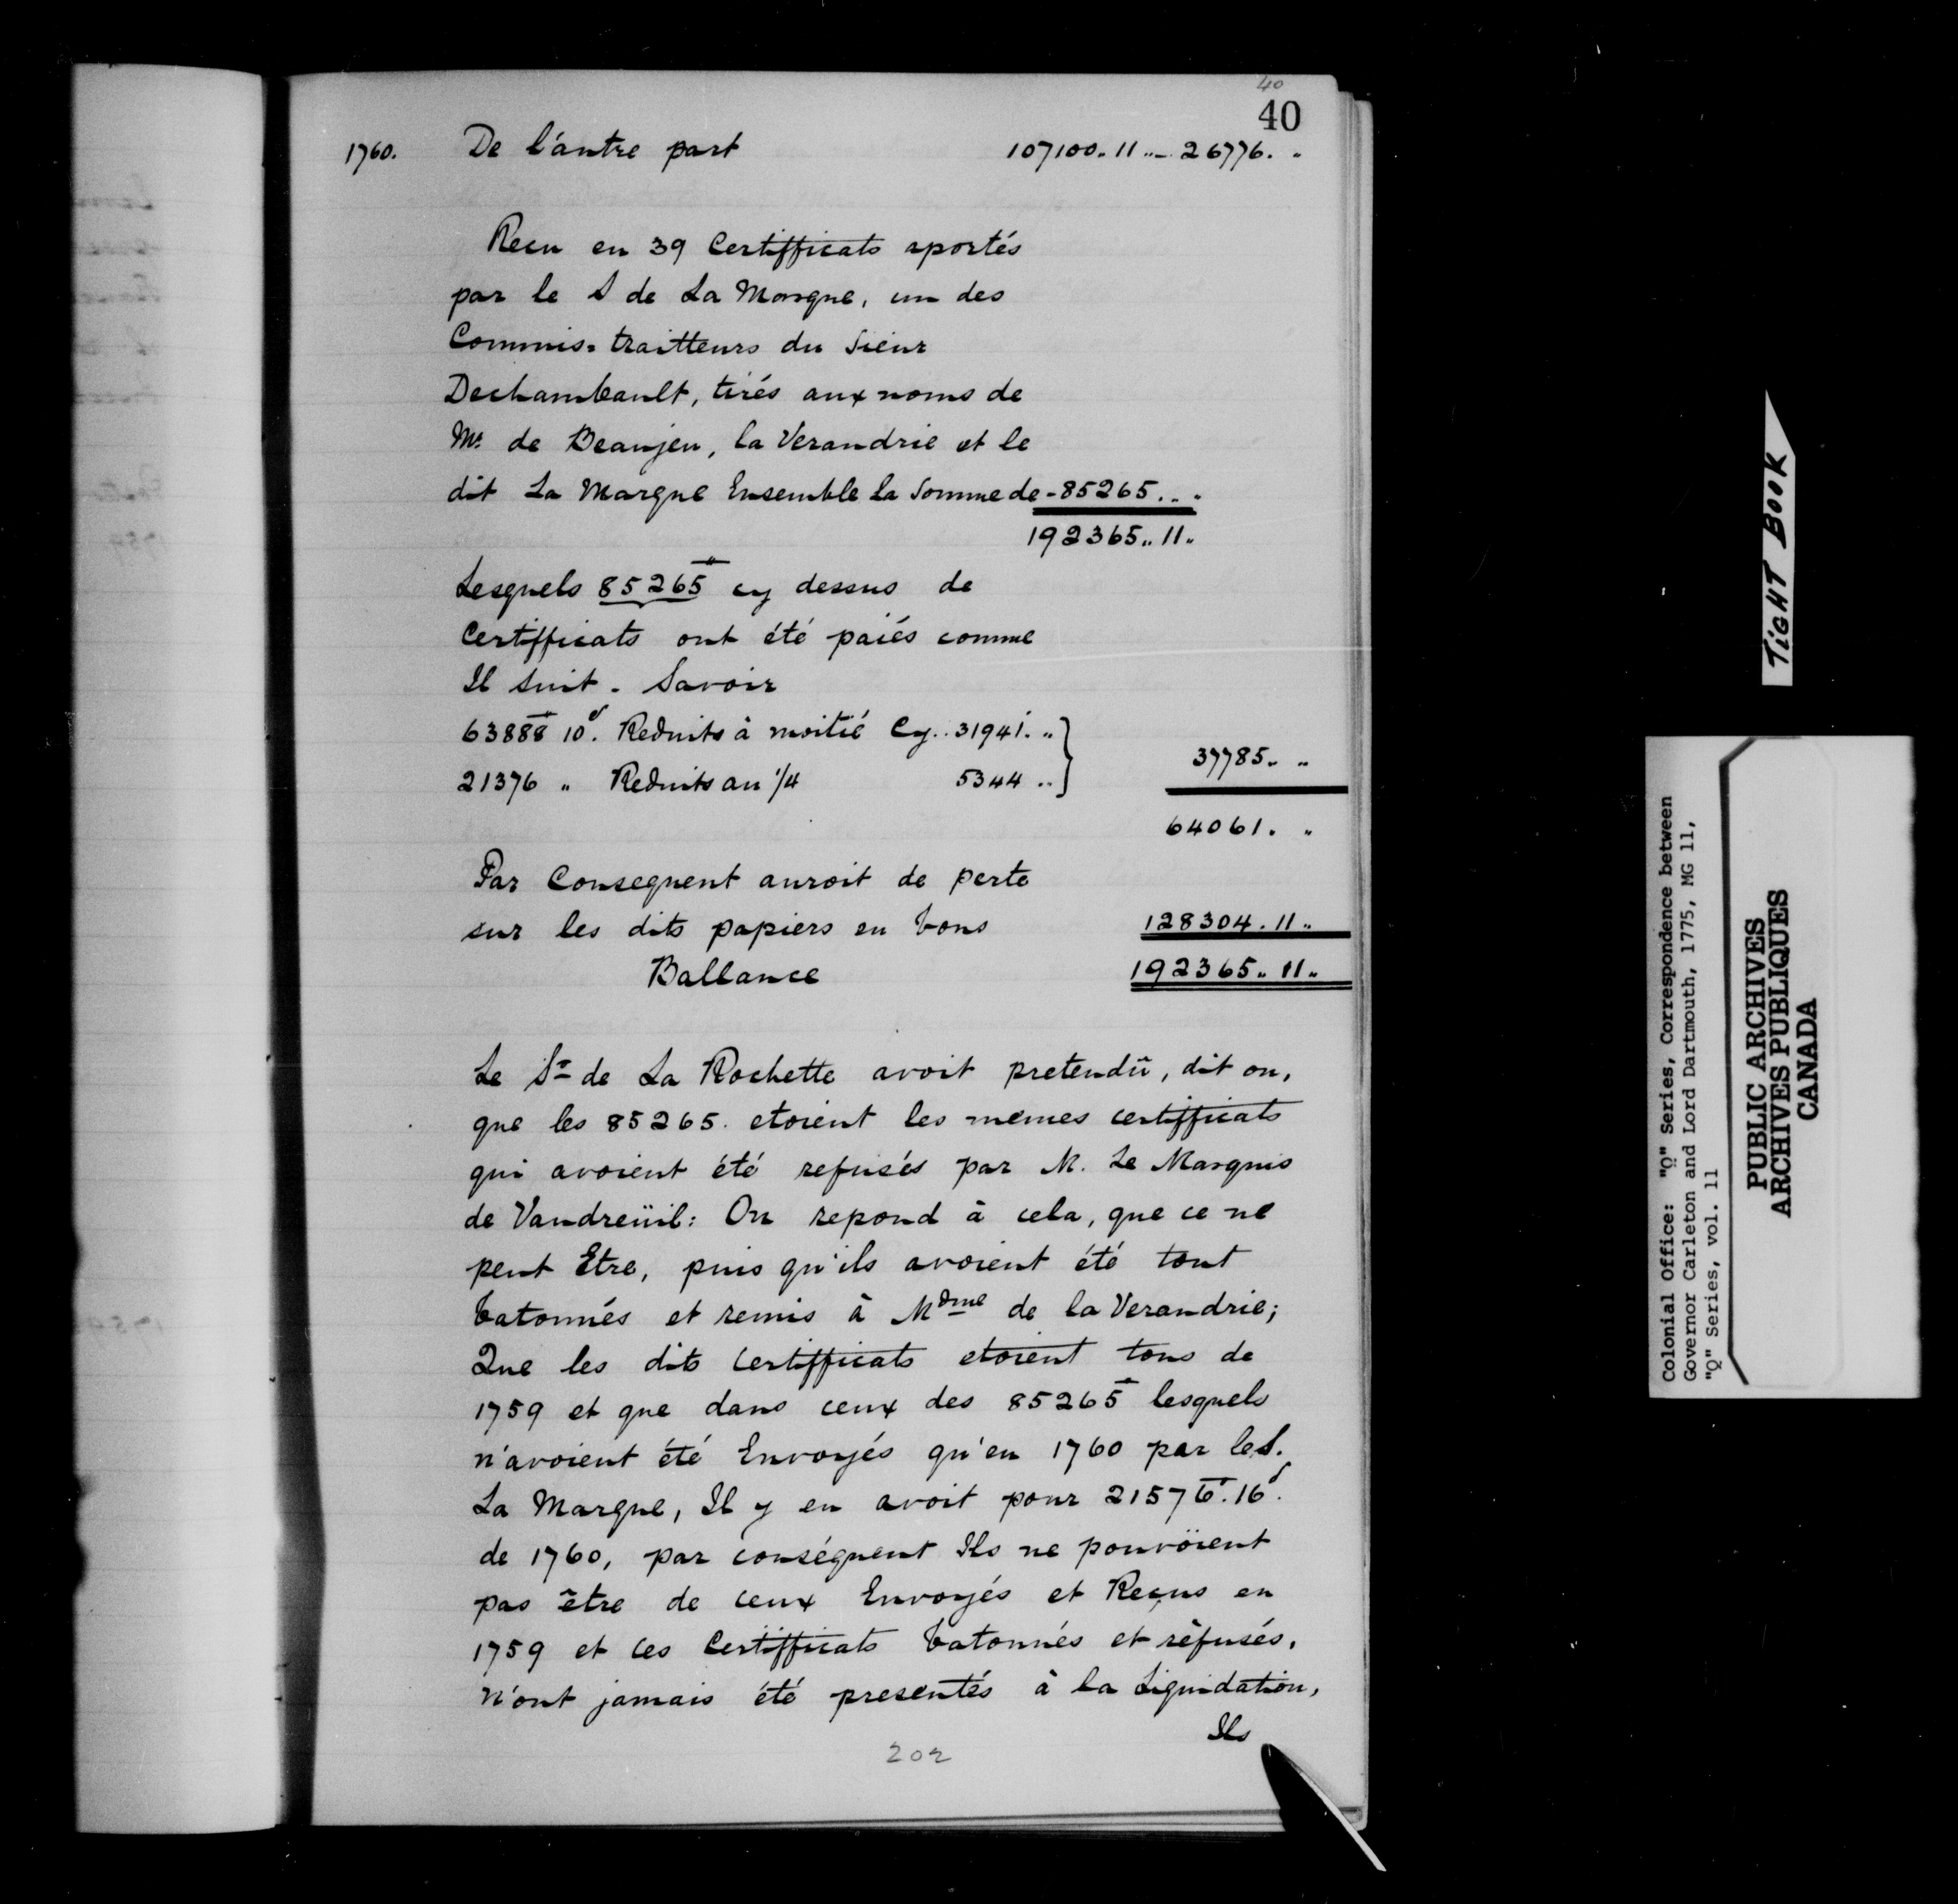 40
40
1760. De l'autre part 107100. 11 ..- 26776. "
Recu en 39 Certifficats aportés
par le S de La Marque, un des
Commis= traitteurs du Sieur
Dechambault, tirés aux noms de
Mr. de Beaujeu, la Verandrie et le
dit La Marque Ensemble la Somme de - 85265...
192365.. 11..
Lesquels 85265 cy dessus de
Certifficats ont été paiés comme
Il Suit - Savoir
63888 10s. Reduits à moitié Cy.. 31941. "
37785. "
21376 " Reduits au 1/4 5344 ..
64061. "
Par Consequent auroit de perte
sur les dits papiers en bons 128304. 11..
Ballance 192365.. 11..
Le Sr de La Rochette avoit pretendû, dit on,
que les 85265. etoient les memes certifficats
qui avoient été refusés par M. Le Marquis
de Vaudreüil: On repond à cela, que ce ne
peut Etre, puis qu'ils avoient été tout
batonnés et remis à Mdme de la Verandrie;
Que les dits Certifficats etoient tous de
1759 et que dans ceux des 85265 lesquels
n'avoient été Envoyés qu'en 1760 par le S.
La Marque, Il y en avoit pour 21576. 16s.
de 1760, par conséquent Ils ne pouvoient
pas être de ceux Envoyés et Reçus en
1759 et ces Certifficats batonnés et réfusés,
n'ont jamais été presentés à la Liquidation,
Ils
202
TiGHT BOOK
Colonial Office: "Q" Series, Correspondence between
Governor Carleton and Lord Dartmouth, 1775, MG 11,
"Q" Series, vol. 11
PUBLIC ARCHIVES
ARCHIVES PUBLIQUES
CANADA